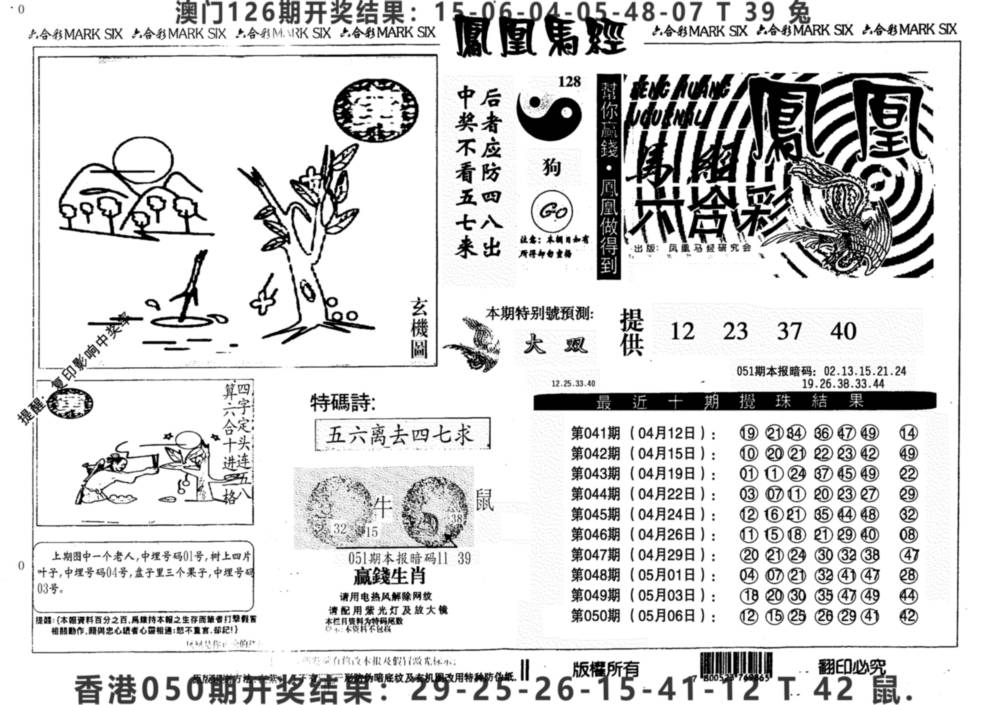 澳门126期开奖结果：15-06-04-05-48-07 T 39 兔
六合彩MARK SIX 六合彩MARK SIX 六合彩MARK SIX 六合彩MARK SIX
鳳凰馬經
六合彩MARK SIX 六合彩MARK SIX 六合彩MARK SIX
玄機圖
后者应防四八出
中奖不看五七来
128
狗
Go
注意：本期目如有
所得却勿重猜
幫你贏錢·鳳凰做得到
FENG HUANG
JOURNAL
鳳凰
馬經
六合彩
出版：凤凰马经研究会
本期特别号预测:
大双
提供
12 23 37 40
051期本报暗码：02.13.15.21.24
19.26.38.33.44
12.25.33.40
提醒：复印影响中奖率
四字定头连五八
算六合十进一格
特碼詩:
五六离去四七求
牛
鼠
32
15
38
051期本报暗码11 39
赢錢生肖
请用电热风解除网纹
请配用紫光灯及放大镜
本栏目资料为特码尾数
最近十期攪珠結果
第041期（04月12日）： 19 21 34 36 47 49 14
第042期（04月15日）： 10 20 21 22 23 42 49
第043期（04月19日）： 01 11 24 37 45 49 22
第044期（04月22日）： 03 07 11 20 23 27 29
第045期（04月24日）： 12 16 21 35 44 48 32
第046期（04月26日）： 11 15 18 21 29 40 08
第047期（04月29日）： 20 21 24 30 32 38 47
第048期（05月01日）： 04 07 21 32 41 47 28
第049期（05月03日）： 18 20 30 35 47 49 44
第050期（05月06日）： 12 15 25 26 29 41 42
上期图中一个老人,中埋号码01号,树上四片
叶子,中埋号码04号,盘子里三个果子,中埋号码
03号。
版權所有
翻印必究
香港050期开奖结果：29-25-26-15-41-12 T 42 鼠.